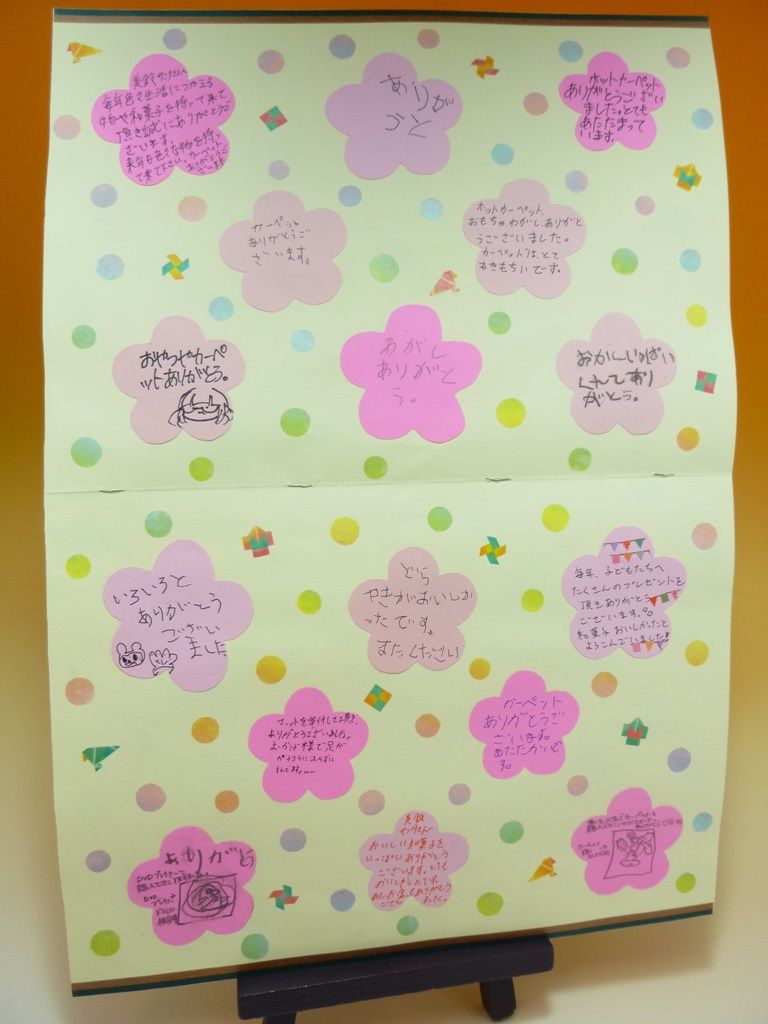 美鈴サンタさんへ
毎年色々生活につかえる
物や和菓子を持って来て
頂き誠にありがとうご
ざいます。
来年も色々な物を持っ
て来て下さい。カーペット
ありがとう
ございます
ありが
とう
ホットカーペット
ありがとうござい
ました。とても
あたたまって
います。
カーペット
ありがとうご
ざいます。
ホットカーペット、
おもちゃ、わがし、ありがと
うございました。
カーペットは、とて
もきもちいです。
おやつやカーペ
ットありがとう。
わがし
ありがと
う。
おかしいっぱい
くれてあり
がとう。
いろいろと
ありがとう
ござい
ました
どら
やきがおいしか
ったです。
またください
毎年、子どもたちへ
たくさんのプレゼントを
頂きありがとう
ございます。
和菓子おいしかったと
よろこんでいました!
マットを寄付して頂き、
ありがとうございました。
おかげ様で足が
カーペット
ありがとうご
ざいます。
あたたかいで
す。
ありがとう
DVDプレイヤーを
DVD
美鈴
サンタさん
おいしい和菓子を
いっぱいありがとう
ございます。とても
おいしかったです。
ありがとう
ござい
ました。